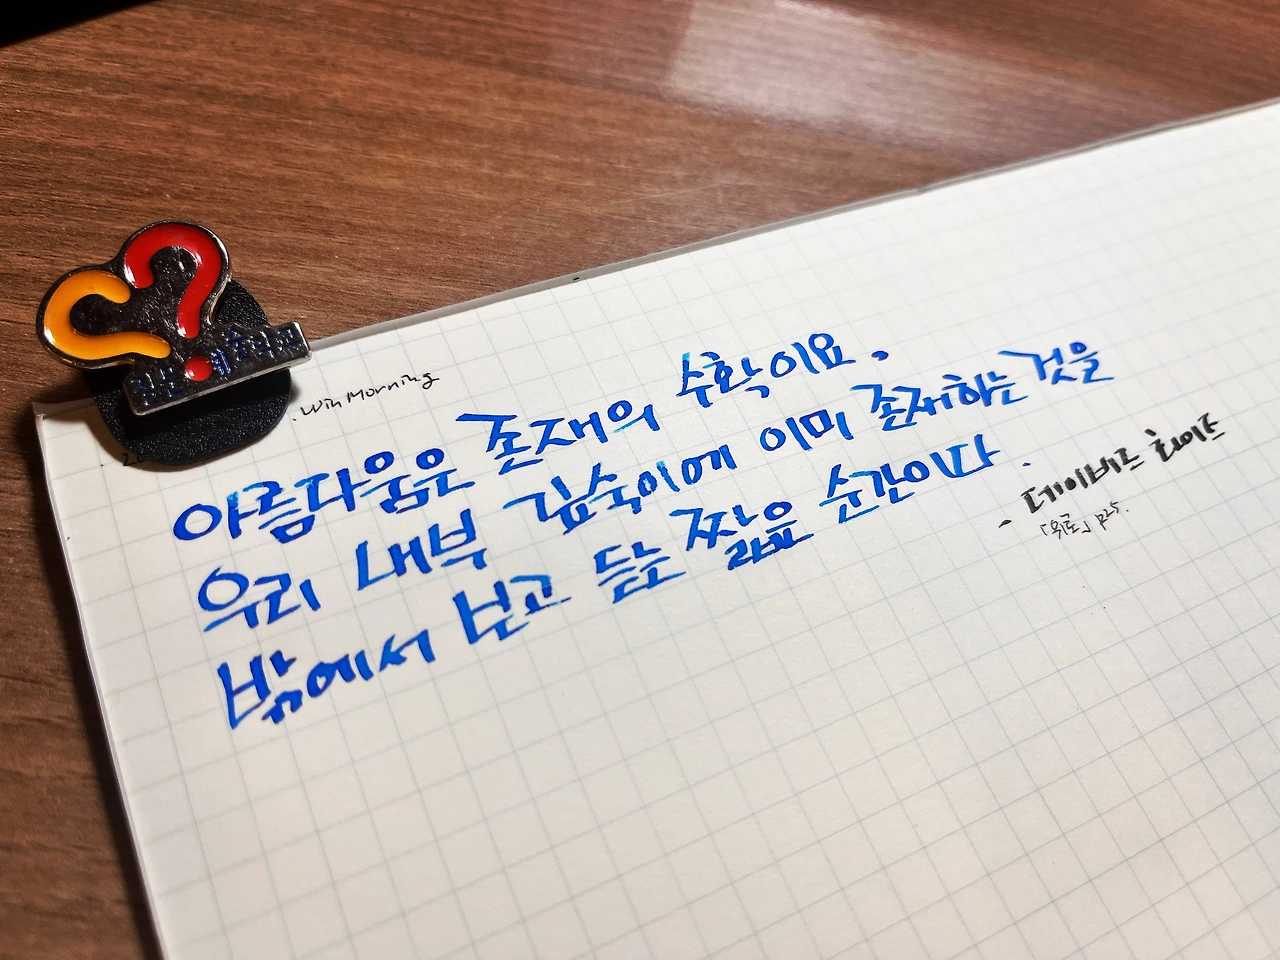 질문예술학교
. Win Morning
아름다움은 존재의 수확이요.
우리 내부 깊숙이에 이미 존재하는 것을
밖에서 보고 듣는 짧은 순간이다.
- 데이비드 화이트
「위로」 p25.